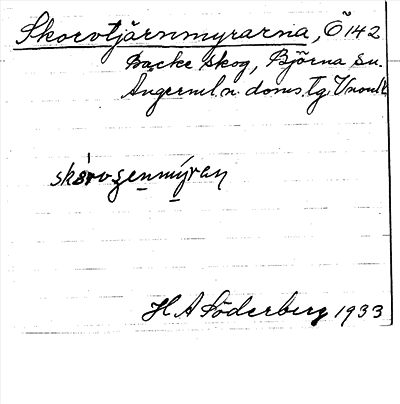 Skorvtjärnmyrarna, Ö 142
Backe skog, Björna sn.
Ångerml. n. doms. tg. Vnorrl.
skörvʒenmýran
H A Söderberg 1933